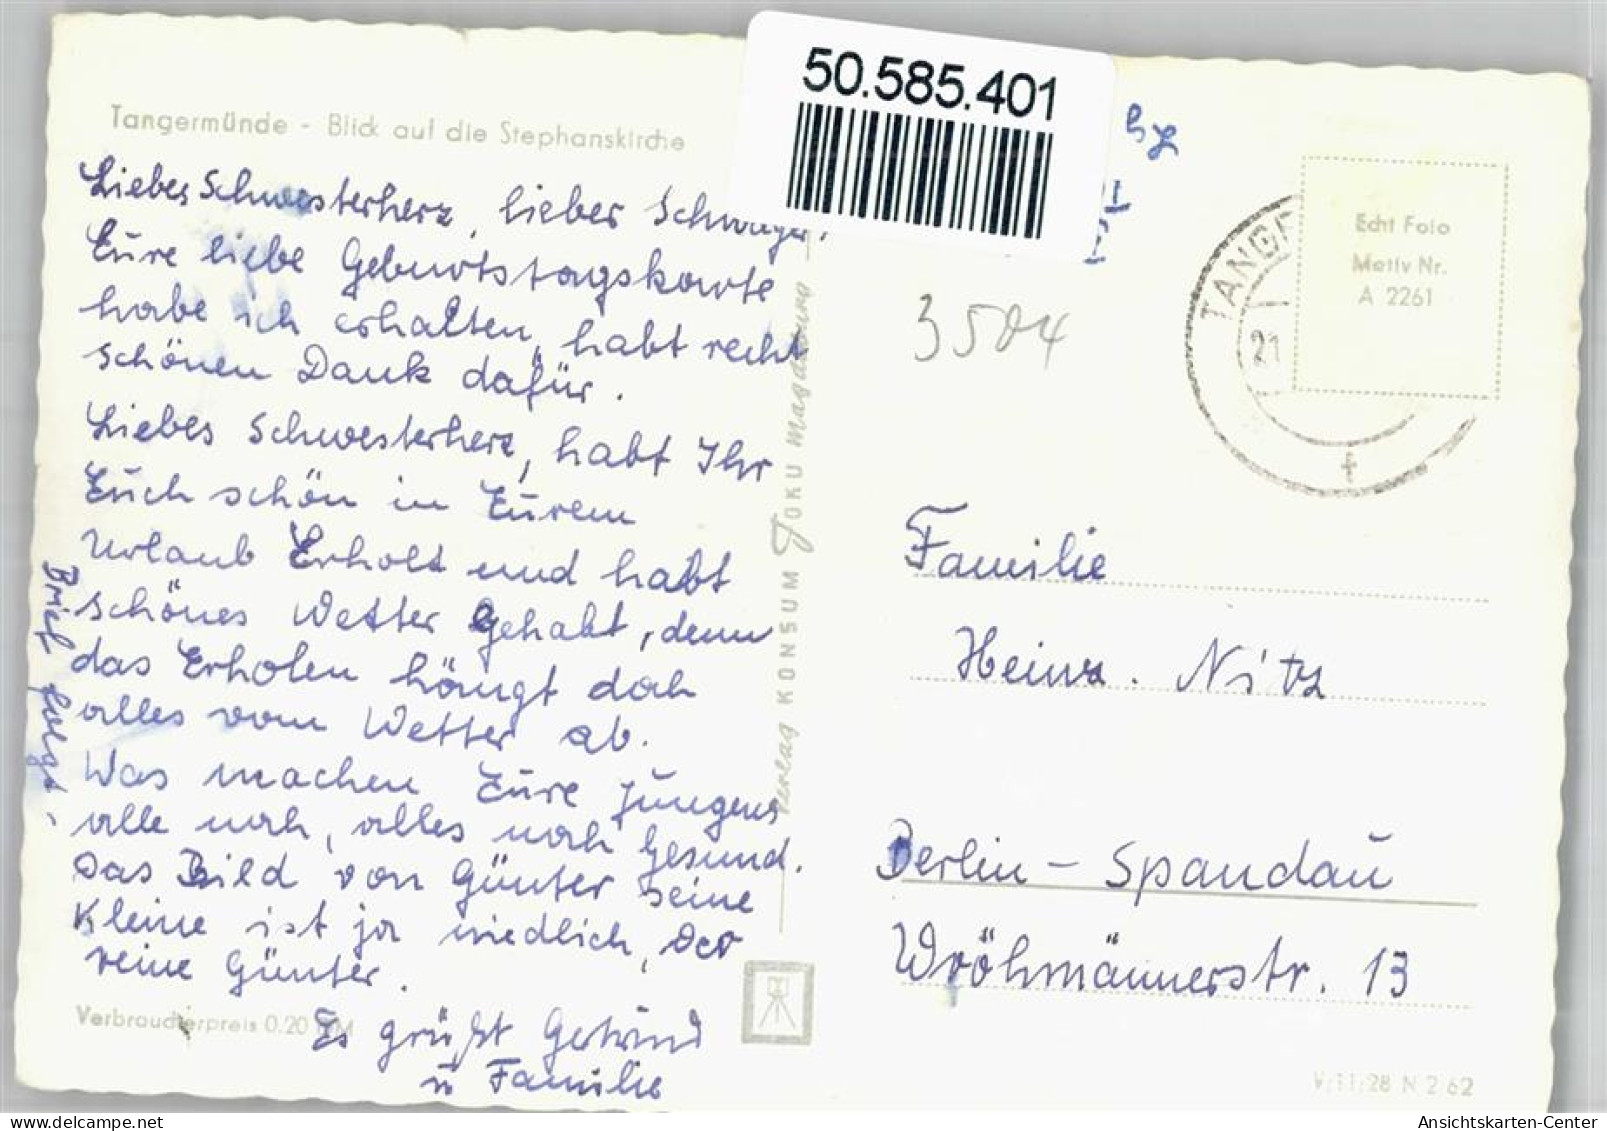 50.585.401
Tangermünde - Blick auf die Stephanskirche
Liebes Schwesterherz, lieber Schwager,
Eure liebe Geburtstagskarte
habe ich erhalten, habt recht
schönen Dank dafür.
Liebes Schwesterherz, habt Ihr
Euch schön in Eurem
Urlaub Erholt und habt
schönes Wetter Gehabt, denn
das Erholen hängt doch
alles vom Wetter ab.
Was machen Eure Jungens
alle noch, alles noch Gesund.
Das Bild von Günter seine
Kleine ist ja niedlich, der
reine Günter.
Es grüßt Gertrud
u Familie
Brief folgt.
Verbraucherpreis 0.20 DM
Verlag KONSUM FOKU Magdeburg
3504
TANGE
21
Echt Foto
Motiv Nr.
A 2261
Familie
Heinz. Nitz
Berlin - Spandau
Wröhmännerstr. 13
V-11-28 N 2 62
Ansichtskarten-Center